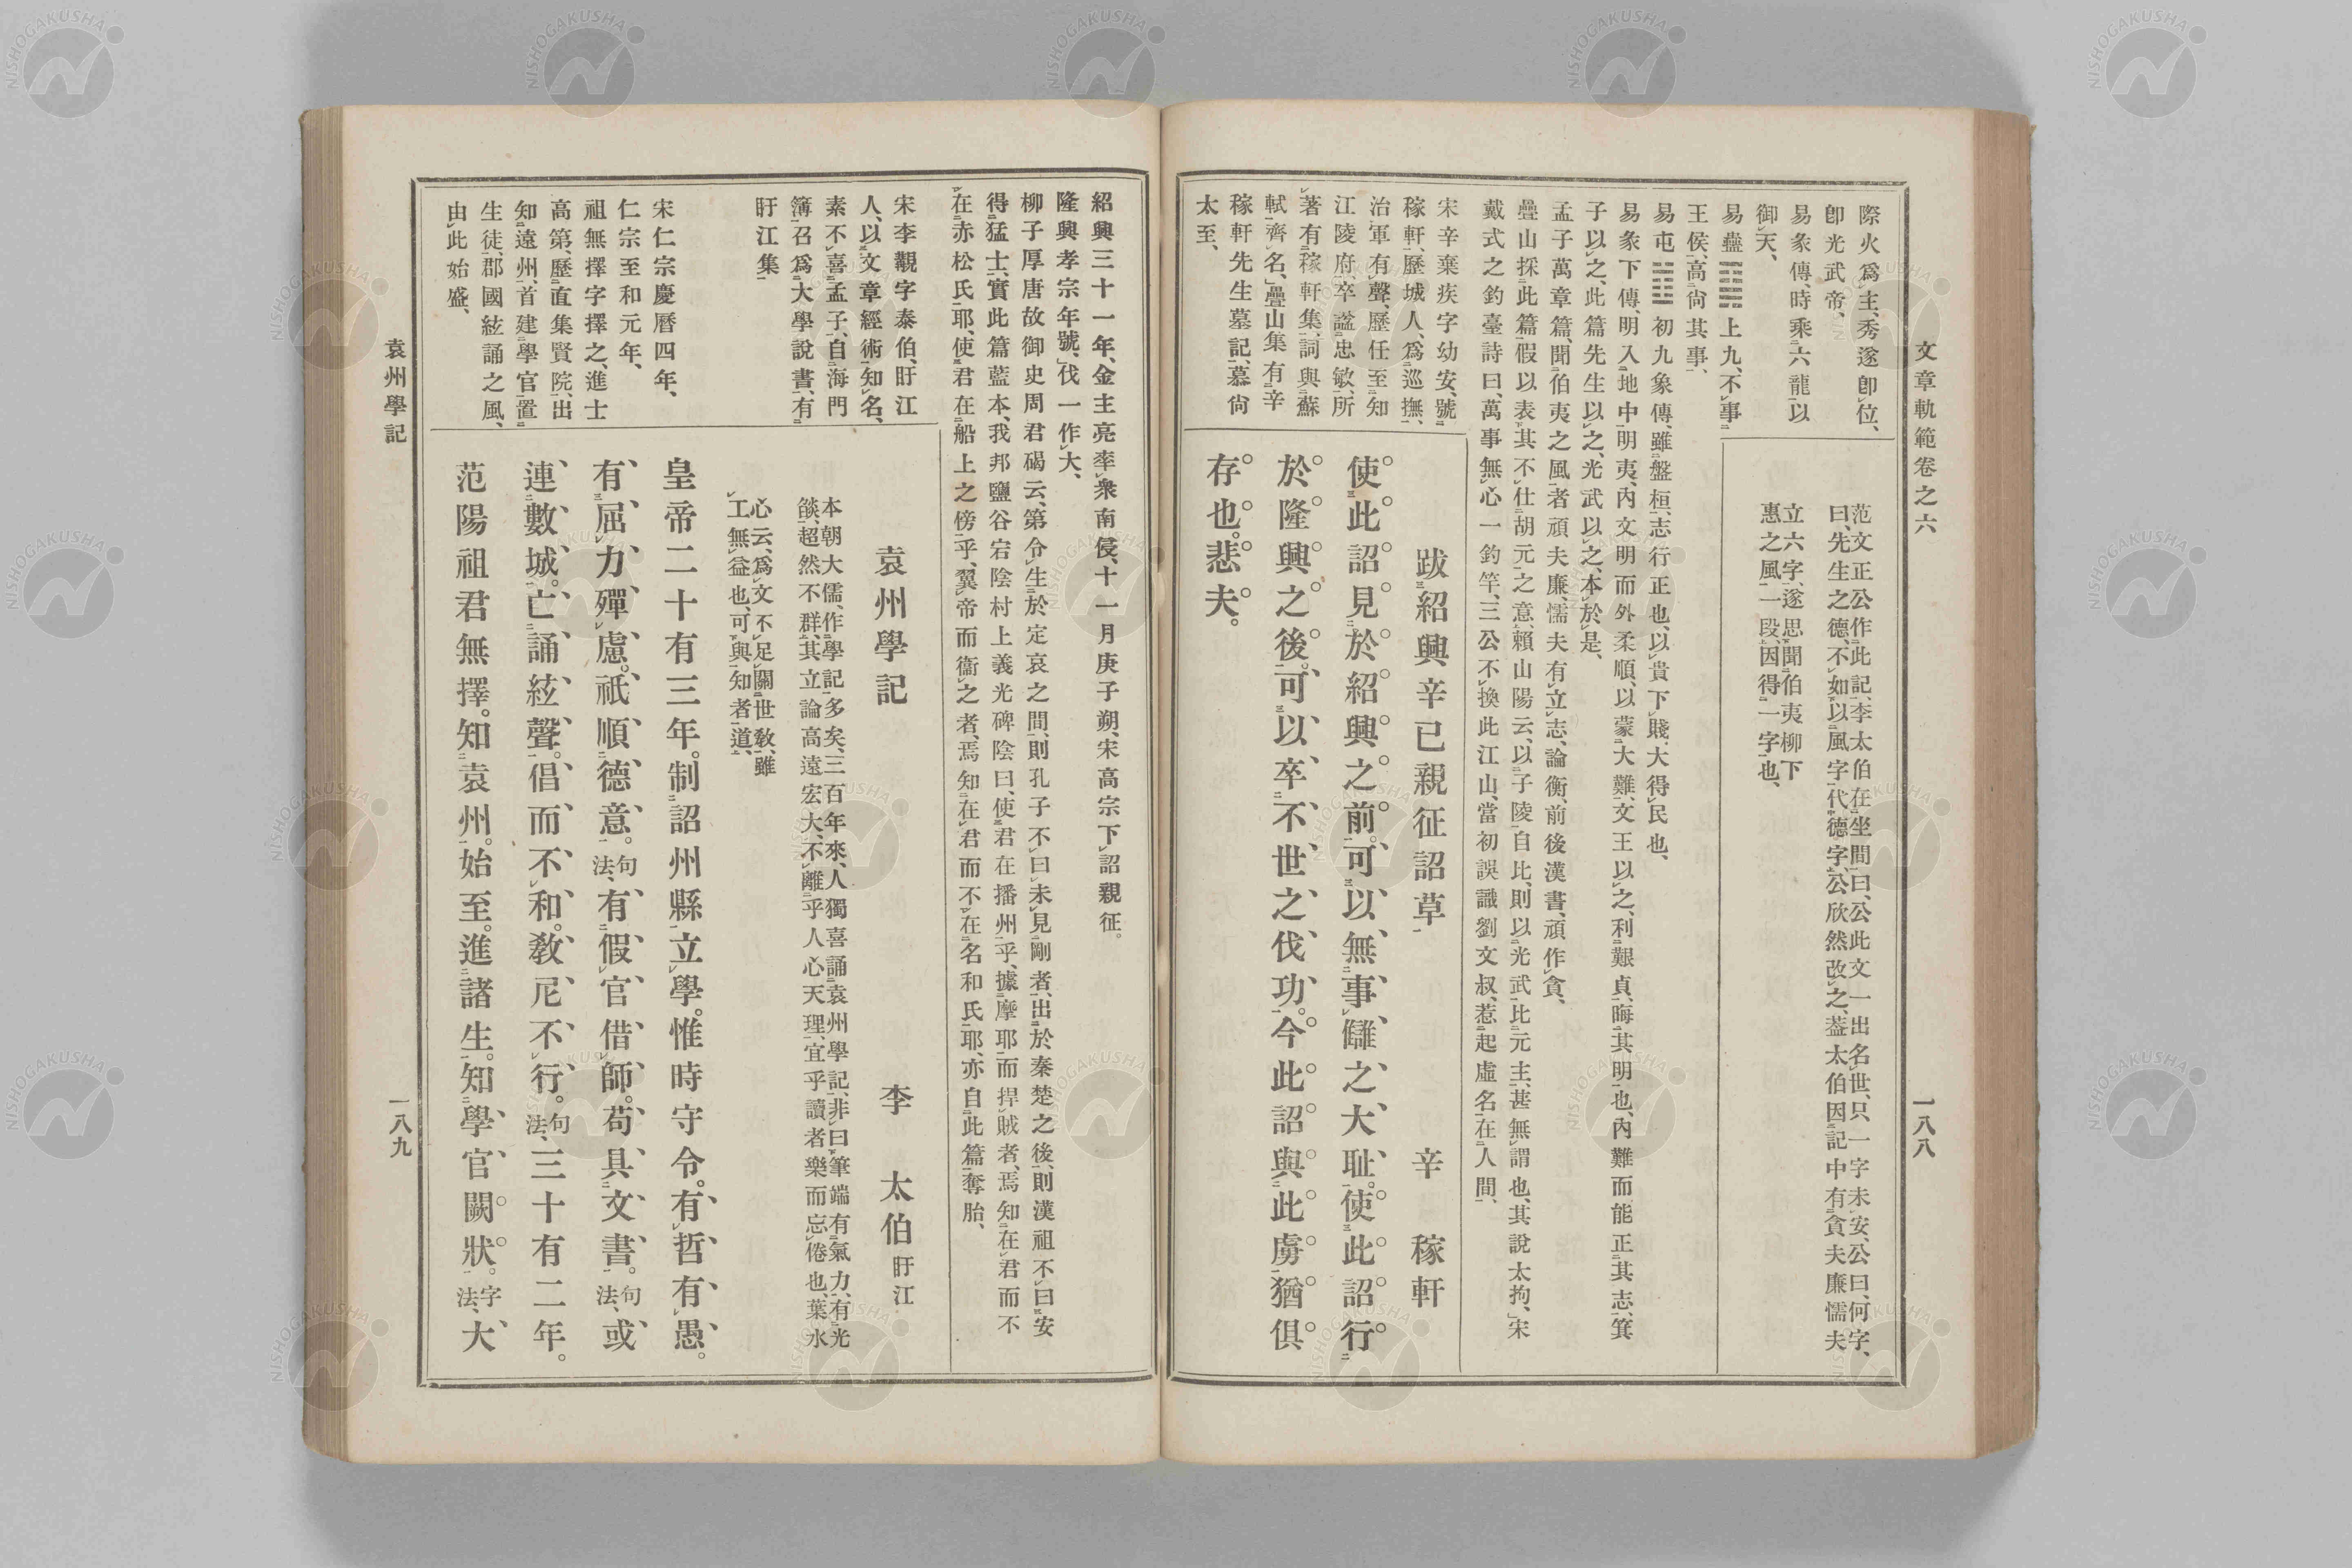 文章軌範卷之六
一八八
際火爲主、秀遂卽位、
卽光武帝、
易彖傳、時乘六龍以
御天、
易蠱䷑上九、不事
王侯、高尙其事、
范文正公作此記、李太伯在坐間曰、公此文一出名世、只一字未安、公曰、何字、
曰、先生之德、不如以風字代德字、公欣然改之、葢太伯因記中有貪夫廉懦夫
立六字、遂思聞伯夷柳下
惠之風一段、因得一字也、
易屯䷂初九象傳、雖盤桓、志行正也、以貴下賤、大得民也、
易彖下傳、明入地中明夷、內文明而外柔順、以蒙大難、文王以之、利艱貞、晦其明也、內難而能正其志、箕
子以之、此篇先生以之、光武以之、本於是、
孟子萬章篇、聞伯夷之風者頑夫廉、懦夫有立志、論衡、前後漢書、頑作貪、
疊山採此篇、假以表其不仕胡元之意、賴山陽云、以子陵自比、則以光武比元主、甚無謂也、其說太拘、宋
戴式之釣臺詩曰、萬事無心一釣竿、三公不換此江山、當初誤識劉文叔、惹起虛名在人間、
宋辛棄疾字幼安、號
稼軒、歷城人、爲巡撫、
治軍有聲、歷任至知
江陵府、卒謚忠敏、所
著有稼軒集、詞與蘇
軾齊名、疊山集有辛
稼軒先生墓記、慕尙
太至、
跋紹興辛巳親征詔草
辛稼軒
使此詔見於紹興之前。可以無事讎之大耻。使此詔行
於隆興之後。可以卒不世之伐功。今此詔與此虜猶俱
存也。悲夫。
紹興三十一年、金主亮率衆南侵、十一月庚子朔、宋高宗下詔親征。
隆興孝宗年號、伐一作大、
柳子厚唐故御史周君碣云、第令生於定哀之間、則孔子不曰未見剛者、出於秦楚之後、則漢祖不曰安
得猛士、實此篇藍本、我邦鹽谷宕陰村上義光碑陰曰、使君在播州乎、據摩耶而捍賊者、焉知在君而不
在赤松氏耶、使君在船上之傍乎、翼帝而衞之者、焉知在君而不在名和氏耶、亦自此篇奪胎、
宋李覯字泰伯、盱江
人、以文章經術知名、
素不喜孟子、自海門
簿召爲大學說書、有
盱江集
袁州學記
李太伯盱江
本朝大儒、作學記多矣、三百年來、人獨喜誦袁州學記、非曰筆端有氣力、有光
燄、超然不群、其立論高遠宏大、不離乎人心天理、宜乎讀者樂而忘倦也、葉水
心云、爲文不足關世敎、雖
工無益也、可與知者道、
宋仁宗慶曆四年、
仁宗至和元年、
祖無擇字擇之、進士
高第歷直集賢院、出
知遠州、首建學官、置
生徒、郡國絃誦之風、
由此始盛、
皇帝二十有三年。制詔州縣立學。惟時守令。有哲有愚。
有屈力殫慮。祇順德意。句法、有假官借師。苟具文書。句法、或
連數城。亡誦絃聲。倡而不和。敎尼不行。句法、三十有二年。
范陽祖君無擇。知袁州。始至。進諸生。知學官闕狀。字法、大
袁州學記
一八九